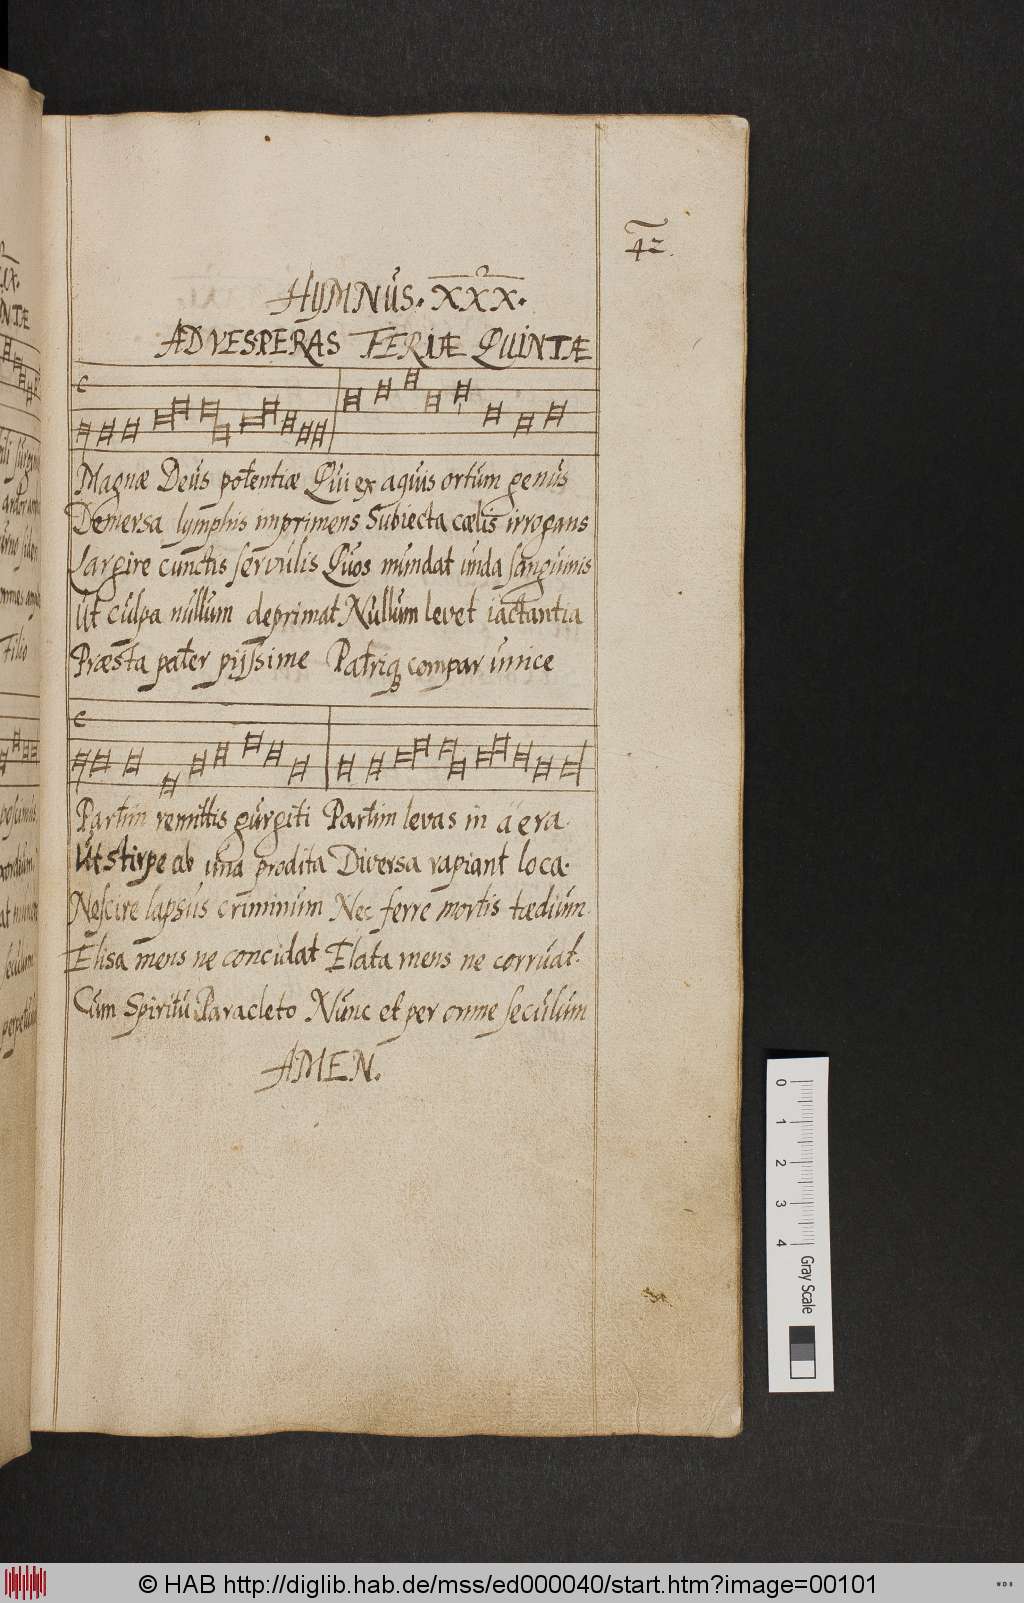 42.
HYMNUS. XXX.
AD VESPERAS FERIÆ QUINTÆ
C
Magnæ Deus potentiæ Qui ex aquis ortum genus
Demersa lymphis imprimens Subiecta cælis irrogans
Largire cunctis servulis Quos mundat unda sanguinis
Ut culpa nullum deprimat Nullum levet iactantia
Præsta pater pijssime Patriq compar unice
C
Partim remittis gurgiti Partim levas in aera.
Ut stirpe ab una prodita Diversa rapiant loca.
Nescire lapsus criminum Nec ferre mortis tædium.
Elisa mens ne concidat Elata mens ne corruat.
Cum Spiritu Paracleto Nunc et per omne seculum
AMEN.
0 1 2 3 4 Gray Scale
© HAB http://diglib.hab.de/mss/ed000040/start.htm?image=00101